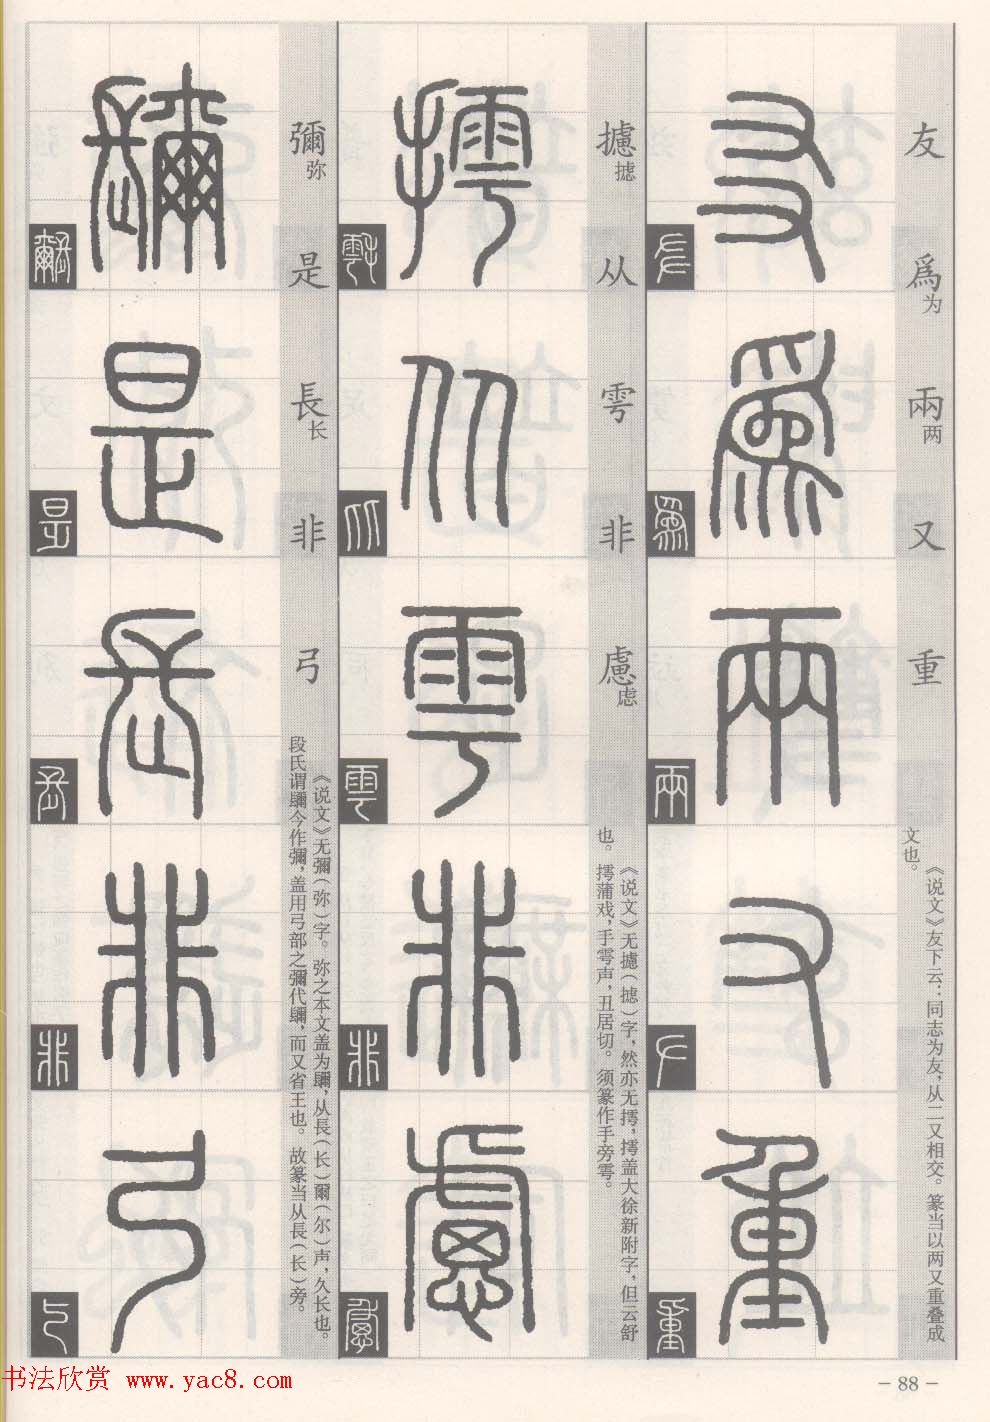 友
爲为
兩两
又
重
《说文》友下云：同志为友，从二又相交。篆当以两又重叠成
文也。
友
爲
兩
又
重
攄摅
从
雩
非
慮虑
《说文》无攄（摅）字，然亦无摴，摴盖大徐新附字，但云舒
也。摴蒲戏，手雩声，丑居切。须篆作手旁雩。
摴
从
雩
非
慮
彌弥
是
長长
非
弓
《说文》无彌（弥）字。弥之本文盖为镾，从長（长）爾（尔）声，久长也。
段氏谓镾今作彌，盖用弓部之彌代镾，而又省王也。故篆当从長（长）旁。
镾
是
長
非
弓
书法欣赏 www.yac8.com
- 88 -